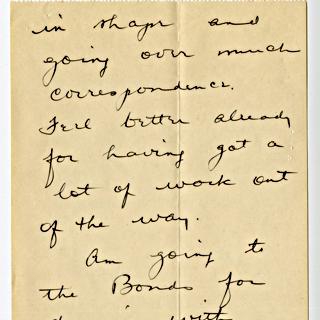 in shape and
going over much
correspondence.
Feel better already
for having got a
lot of work out
of the way.
Am going to
the Bonds for
with